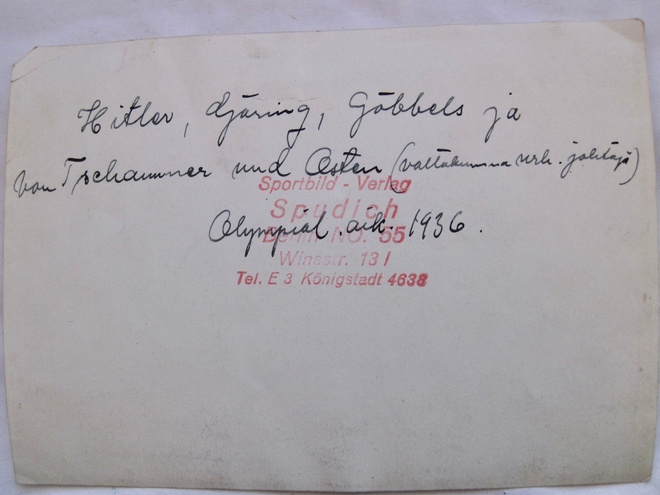 Hitler, Djöring, Göbbels ja
von Tschammer und Osten (valtakunna urh. johtaja)
Sportbild - Verlag
Spudich
Olympial. aik. 1936.
Berlin NO. 55
Winsstr. 13 I
Tel. E 3 Königstadt 4638